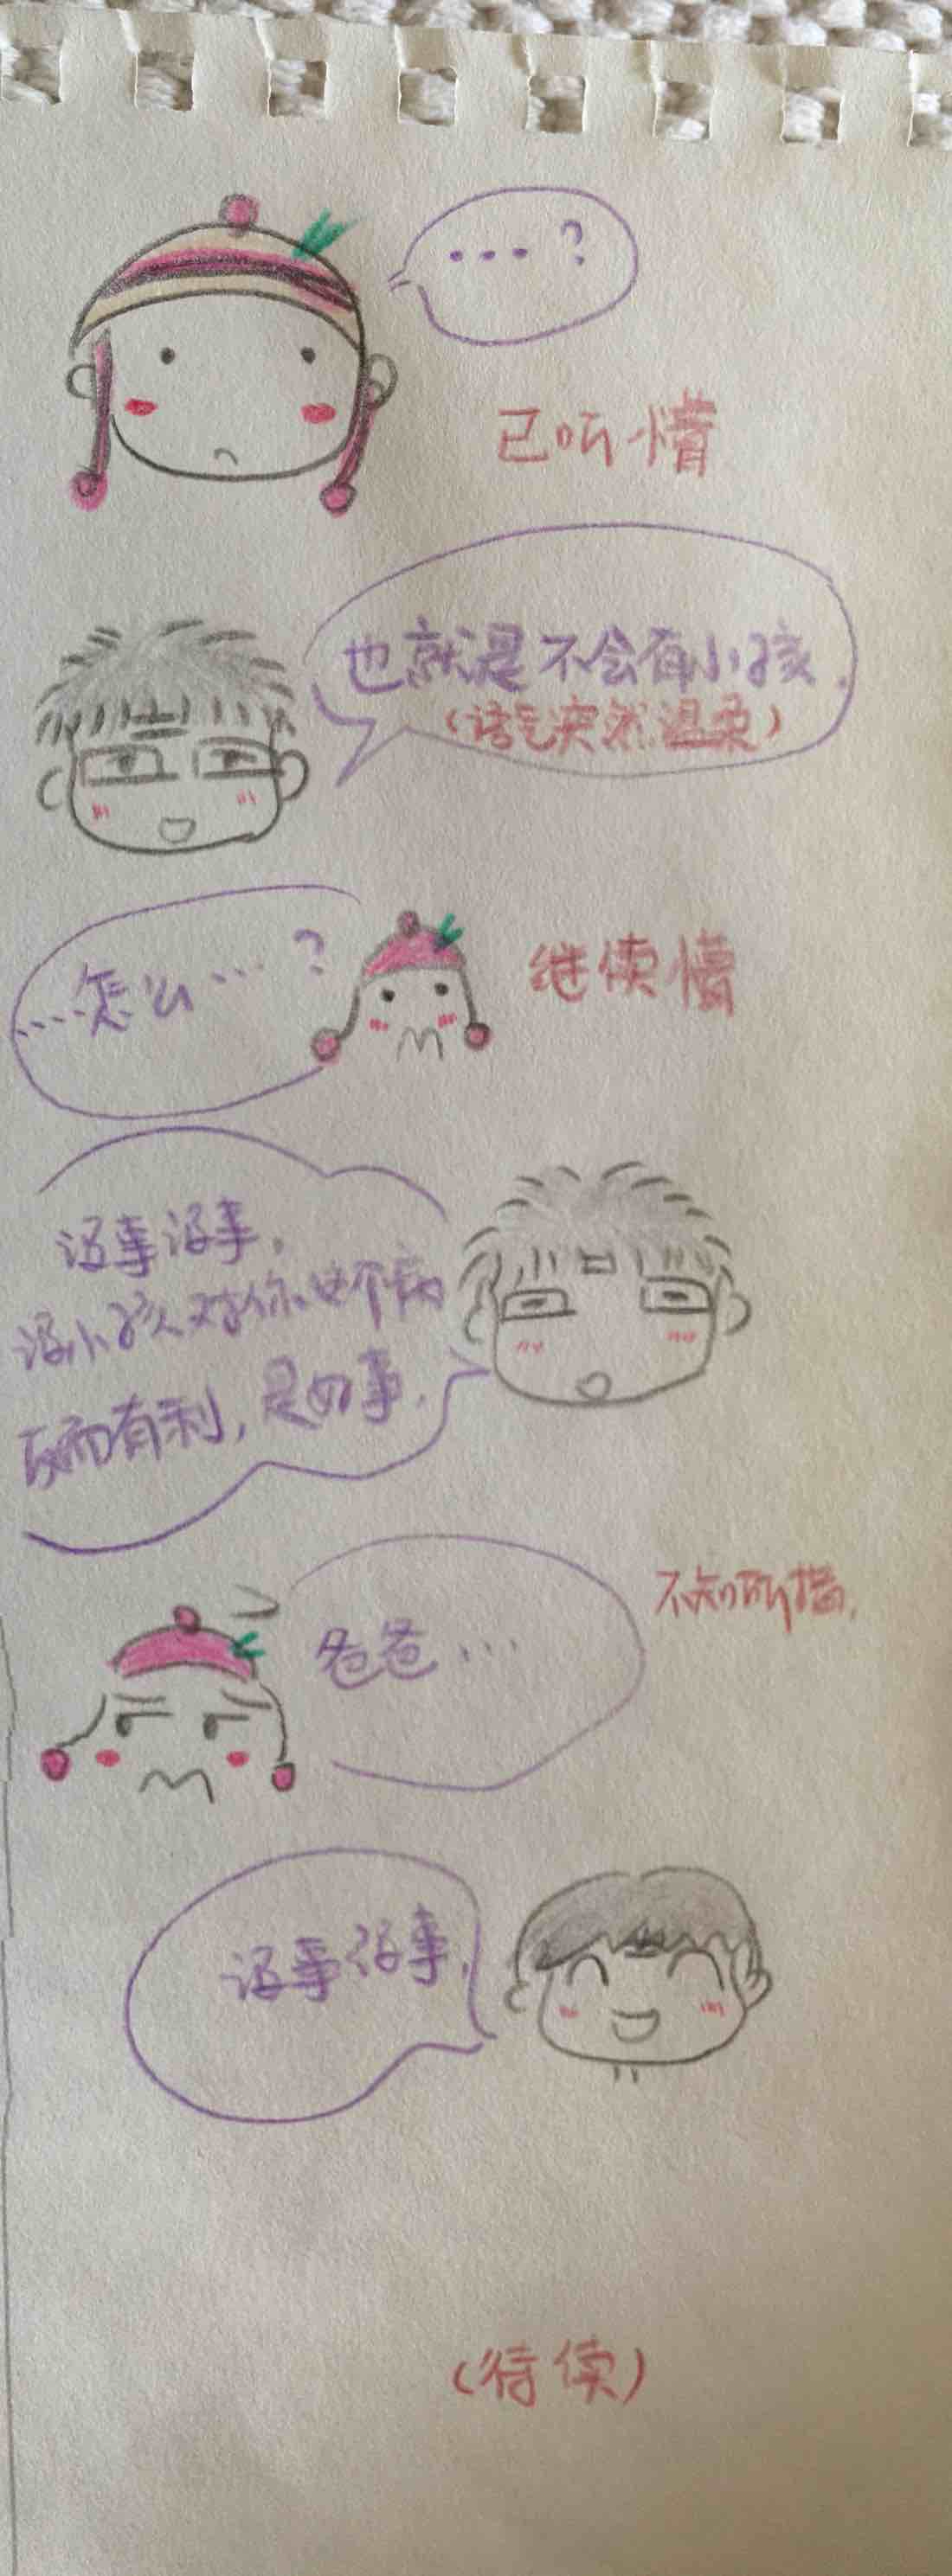 ...?
已听懵
也就是不会有小孩.
(语气突然温柔)
....怎么...?
继续懵
没事没事.
没小孩对你这个病
反而有利,是好事.
爸爸...
不知所措.
没事没事.
(待续)